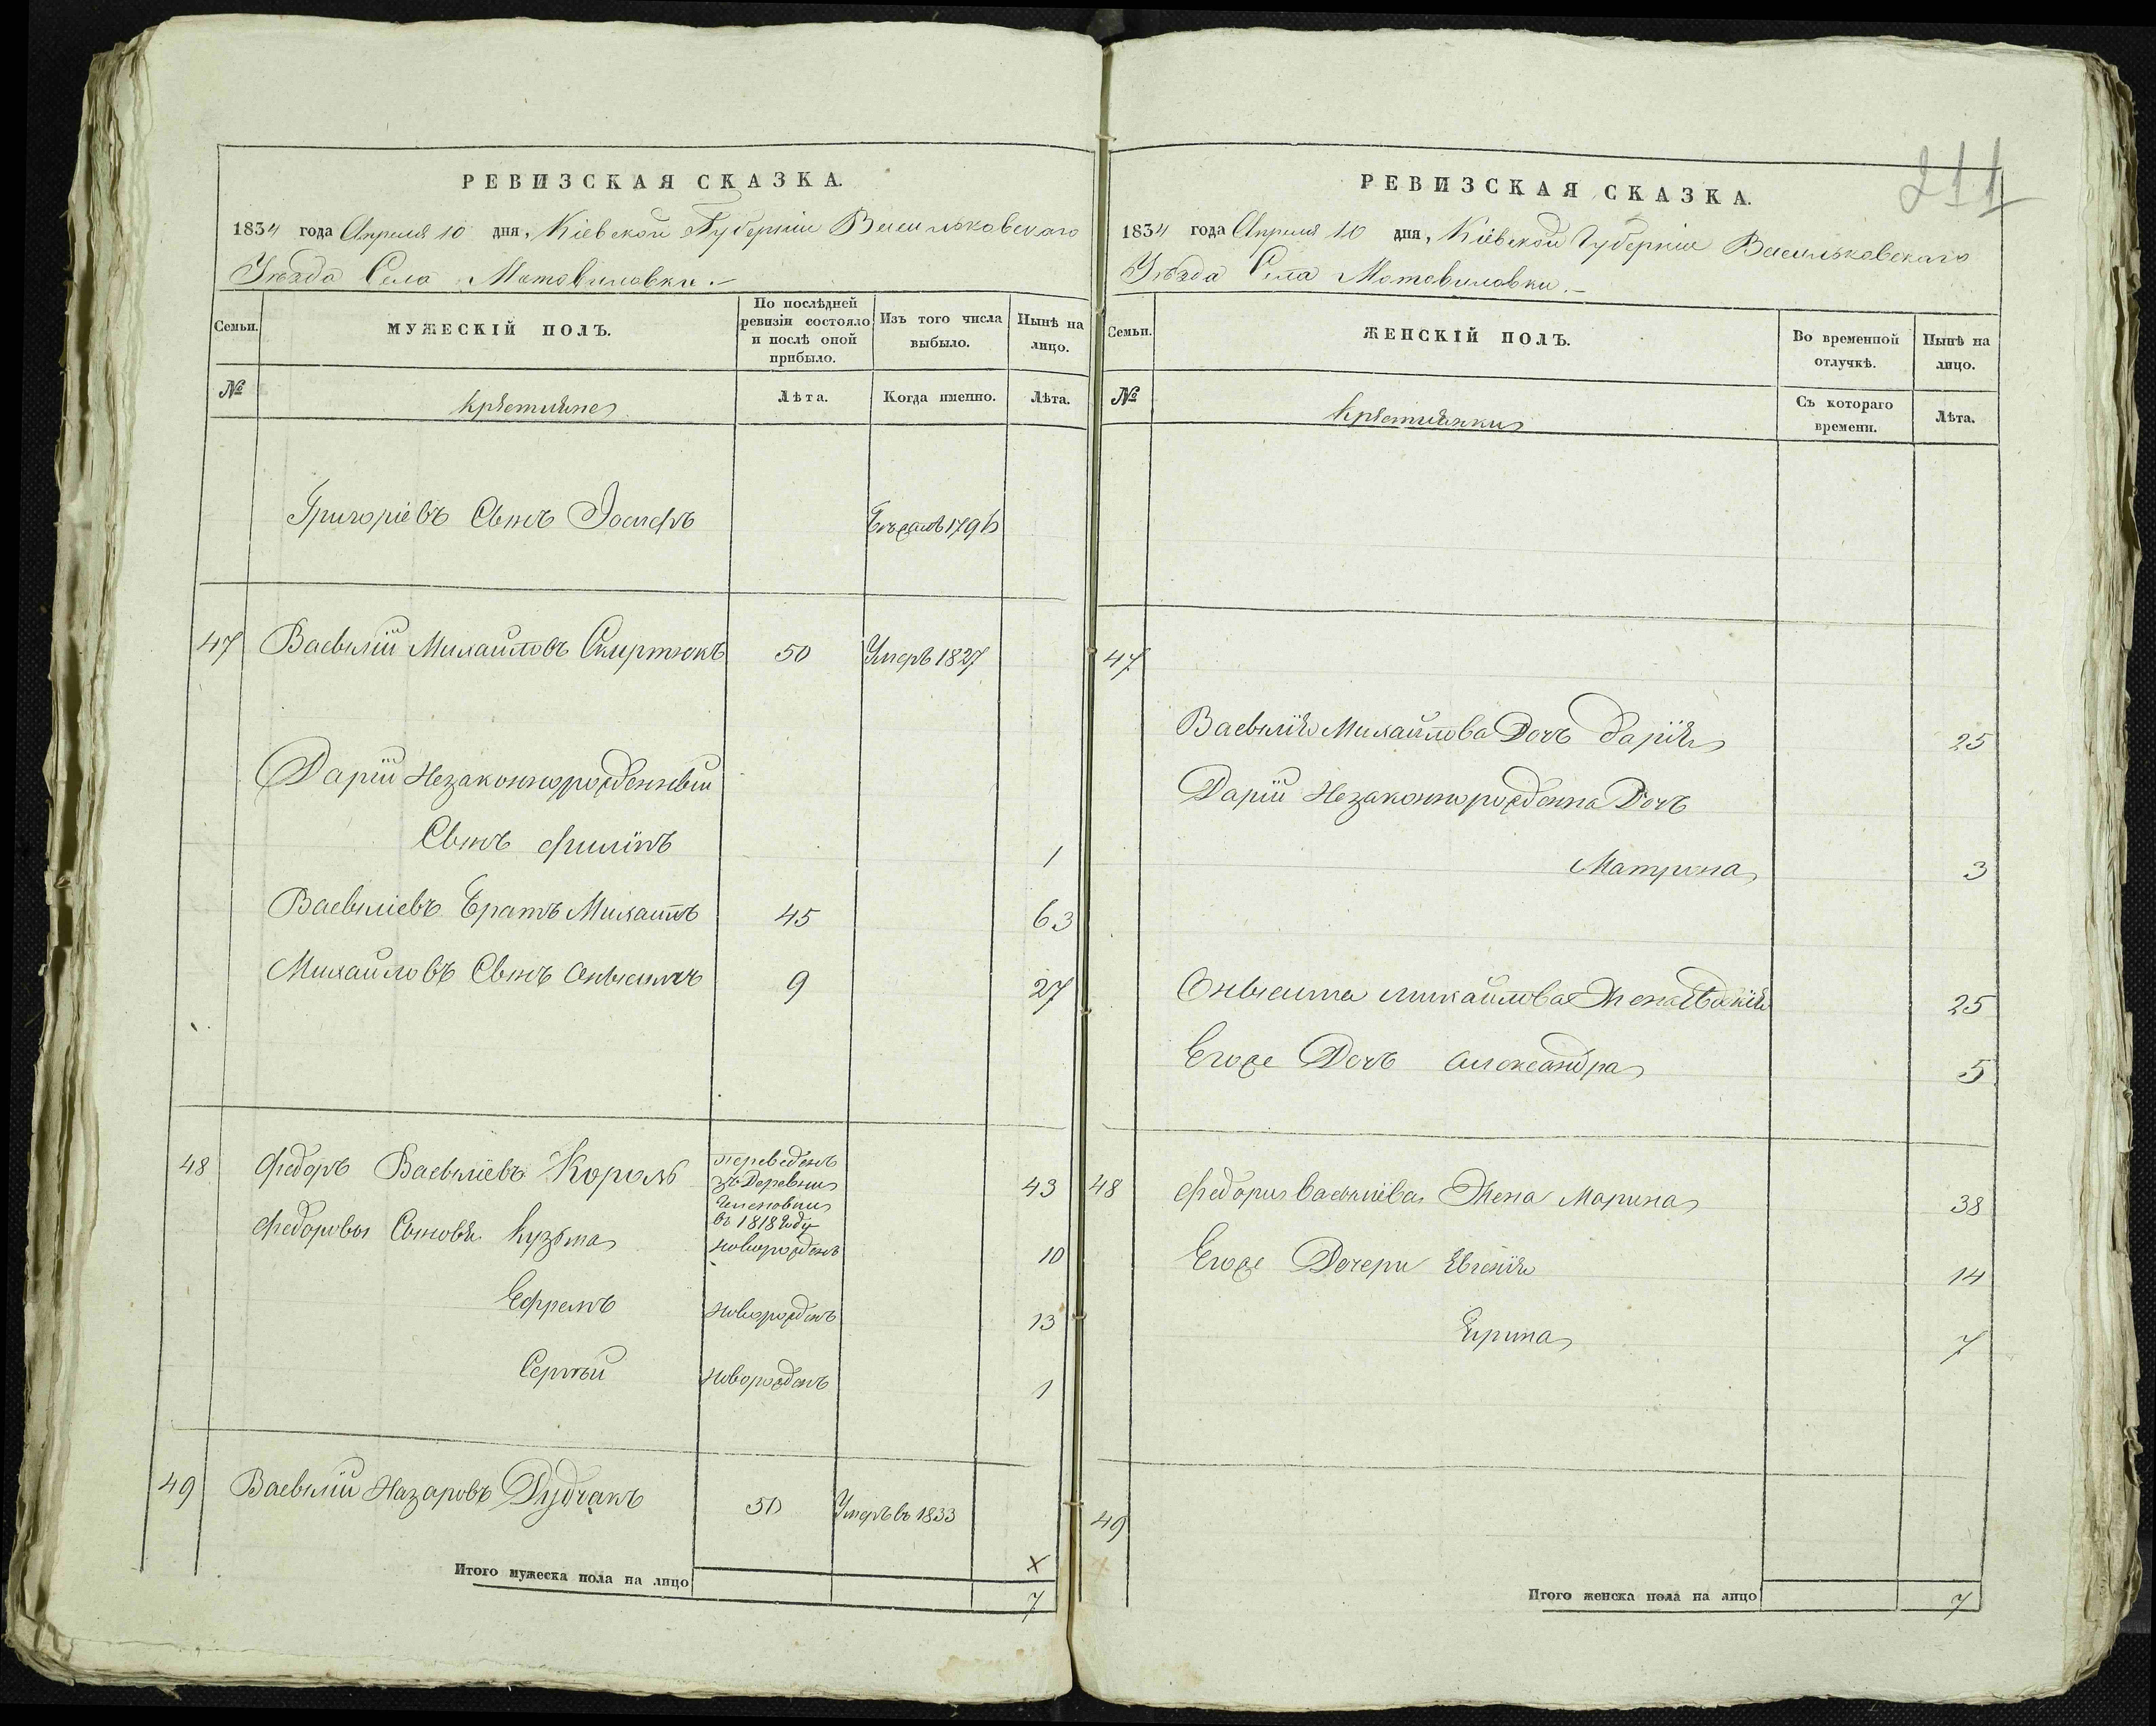 РЕВИЗСКАЯ СКАЗКА.
1834 года Апреля 10 дня, Кіевской Губерніи Васильковскаго
Уѣзда Села Мотовиловки.
Семьи.
МУЖЕСКІЙ ПОЛЪ.
По послѣдней
ревизіи состояло
и послѣ оной
прибыло.
Изъ того числа
выбыло.
Нынѣ на
лицо.
№
Крѣстяне
Лѣта.
Когда именно.
Лѣта.
Григоріевъ Сынъ Іосифъ
47 Васылій Михайловъ 50 Умеръ 1827
Дарій Незаконнорожденный
Сынъ Филипъ 1
Васыліевъ Братъ Михаилъ 45 63
Михайловъ Сынъ Онысимъ 9 27
48 Федоръ Васыліевъ Король переведенъ
зъ Деревни
в 1818 Году
43
Федоровы Сыновя Кузьма новорожденъ 10
Ефремъ новорожденъ 13
Сергѣй новорожденъ 1
49 Васылій Назаровъ Дудчакъ 50 Умеръ въ 1833
х
Итого мужеска пола на лицо 7
211
РЕВИЗСКАЯ СКАЗКА.
1834 года Апреля 10 дня, Кіевской Губерніи Васильковскаго
Уѣзда Села Мотовиловки.
Семьи.
ЖЕНСКІЙ ПОЛЪ.
Во временной
отлучкѣ.
Нынѣ на
лицо.
№
Крѣстянки
Съ котораго
времени.
Лѣта.
47
Васылія Михайлова Дочь Дарія 25
Дарій Незаконнорожденна Дочь
Матрона 3
Онысима Михайлова Жена Евдокія 25
Егоже Дочь Александра 5
48 Федора Васыліева Жена Марина 38
Егоже Дочери Евгенія 14
Ирина 7
49
х
Итого женска пола на лицо 7